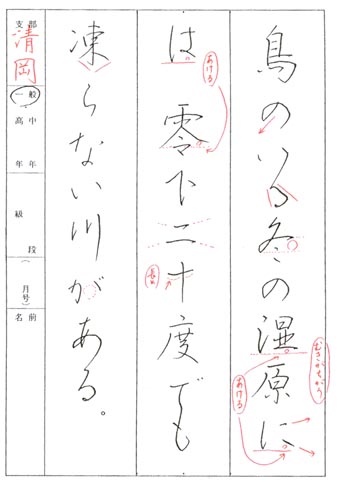 鳥のいる冬の湿原に
は零下二十度でも
凍らない川がある。
むきがちがう
あける
あける
長
支部
清岡
一般
高中
年年
級段
(月号)
名前